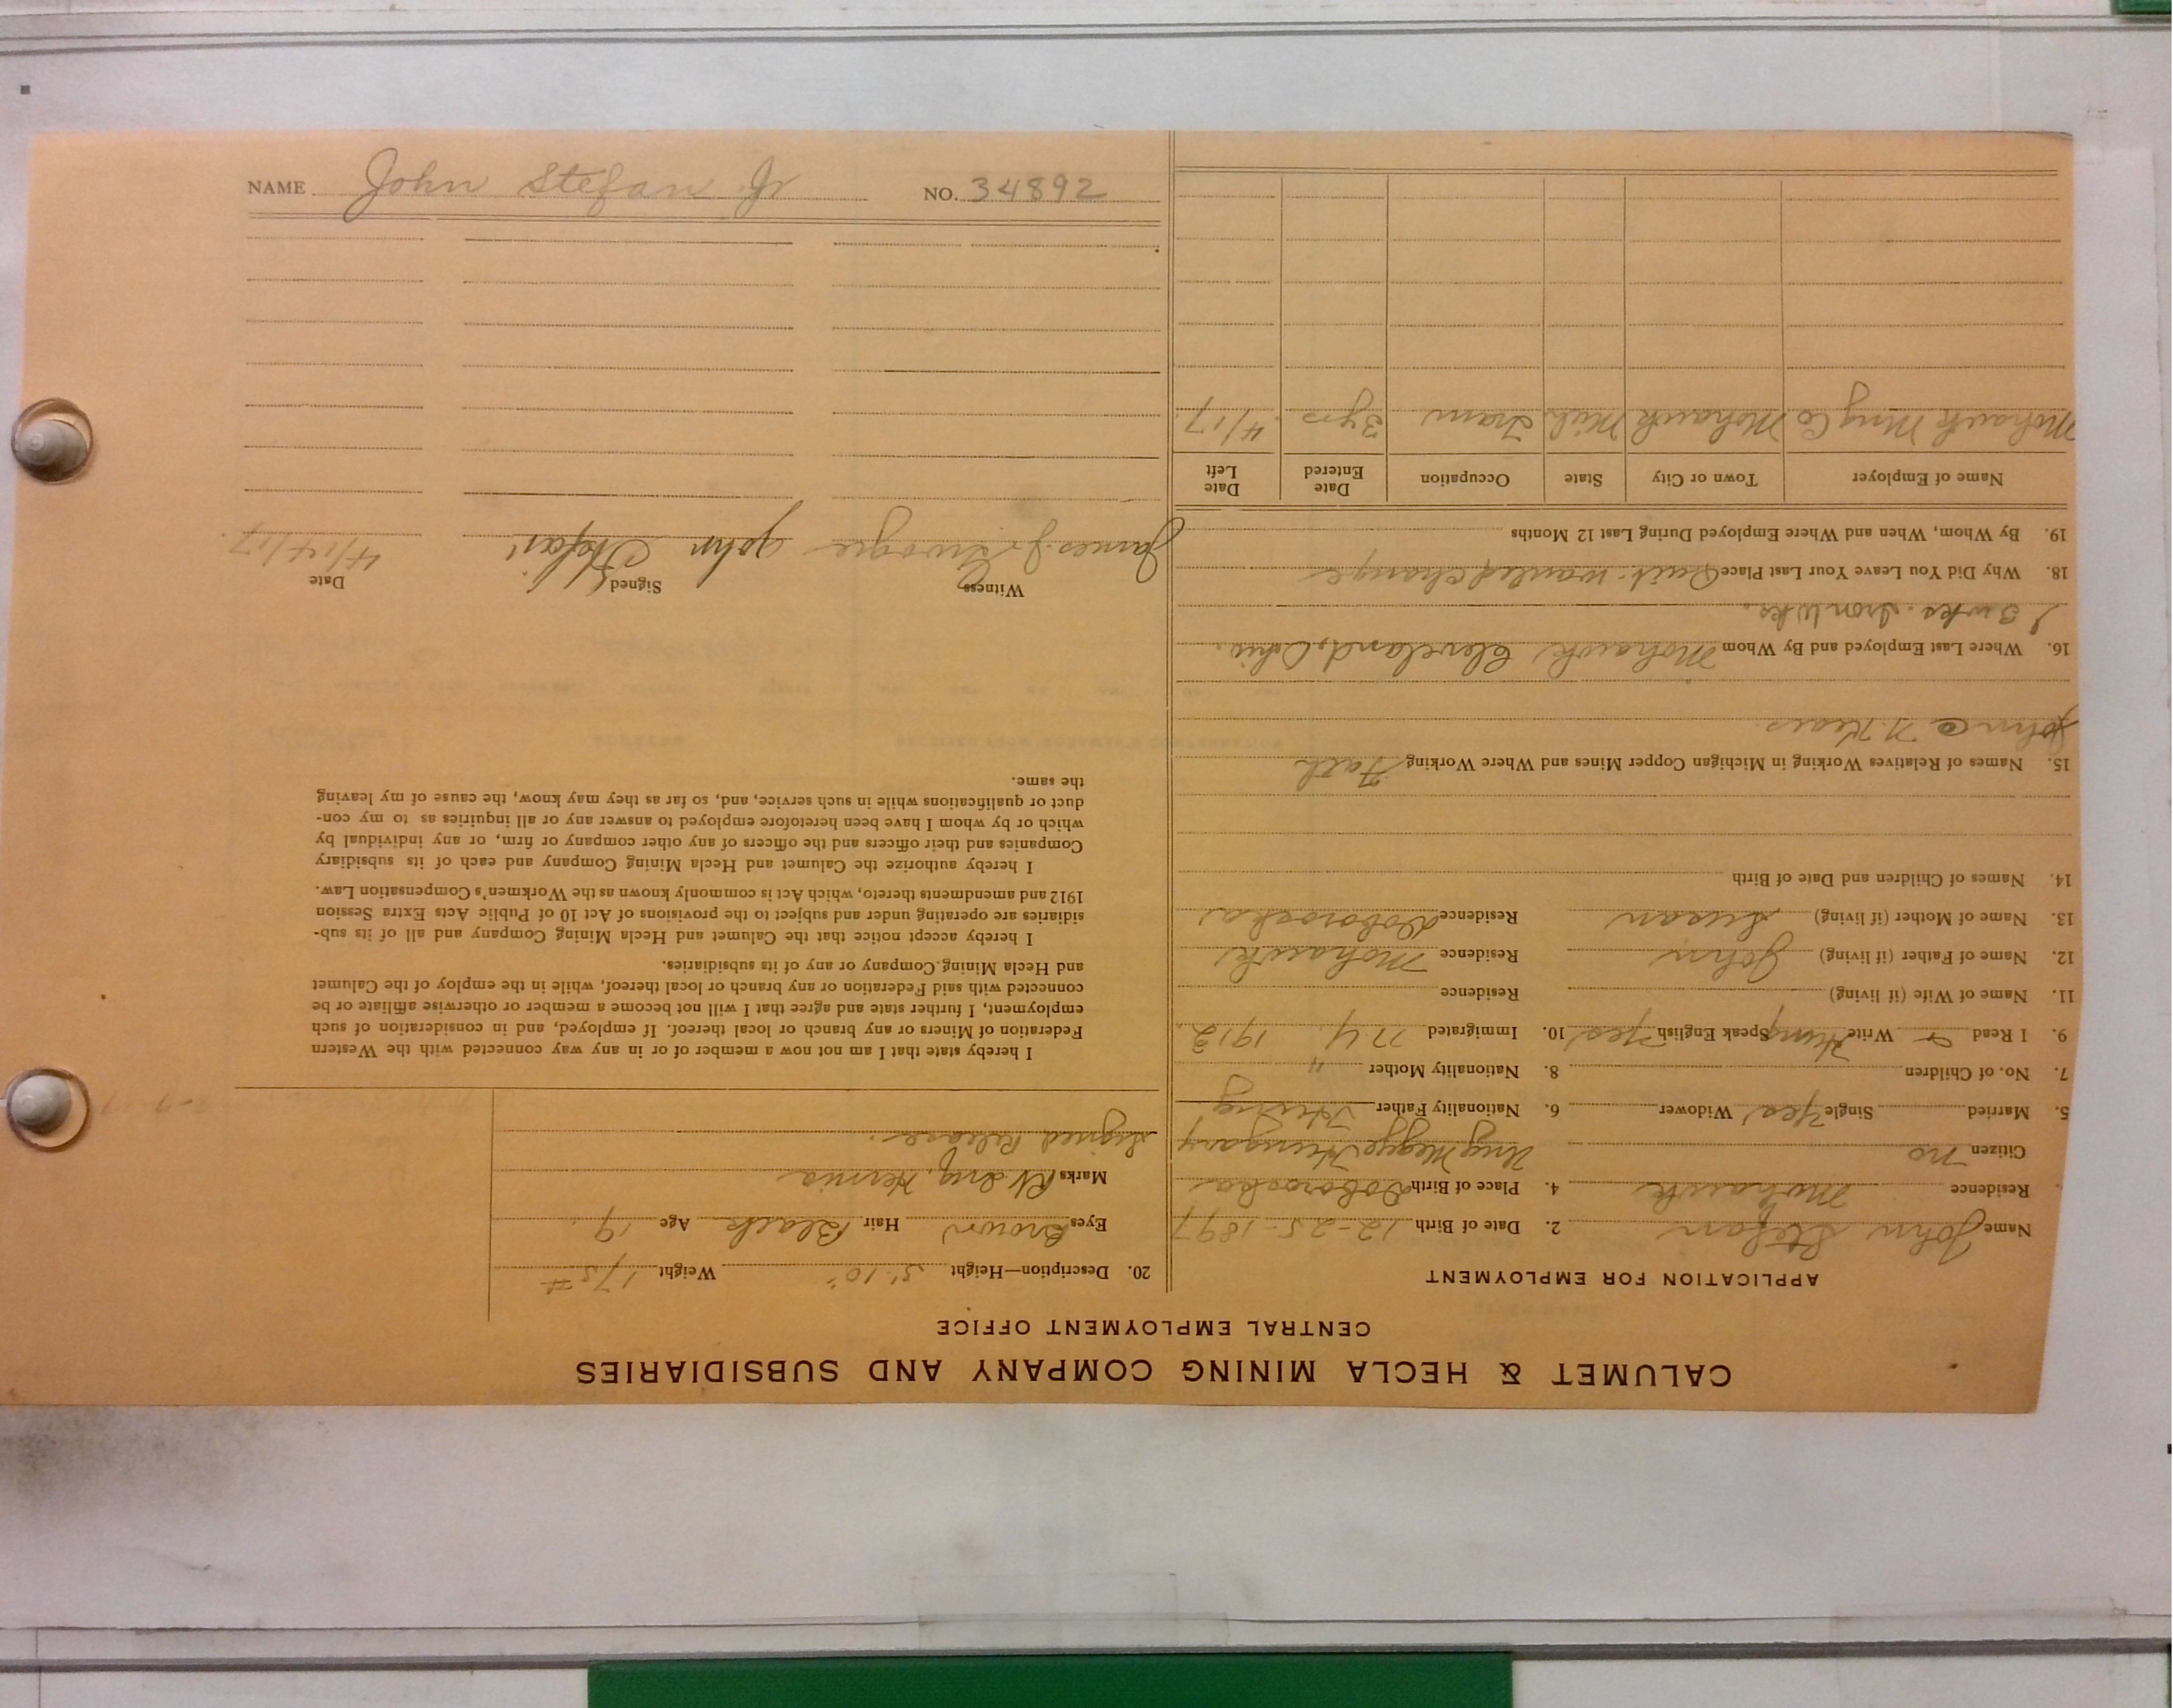 CALUMET & HECLA MINING COMPANY AND SUBSIDIARIES
CENTRAL EMPLOYMENT OFFICE
APPLICATION FOR EMPLOYMENT
Name John Stefan 2. Date of Birth 12-25-1897
Residence Mohawk 4. Place of Birth Doboroska
Citizen no Ung Megye Hungary
5. Married Single Yes Widower 6. Nationality Father Hung
7. No. of Children 8. Nationality Mother "
9. I Read & Write Hung Speak English Yes 10. Immigrated N.Y. 1912
11. Name of Wife (if living) Residence
12. Name of Father (if living) John Residence Mohawk
13. Name of Mother (if living) Susan Residence Doboroska
14. Names of Children and Date of Birth
15. Names of Relatives Working in Michigan Copper Mines and Where Working Fath
John @ N. Kears.
16. Where Last Employed and By Whom Mohawk Cleveland, Ohio.
3 wks. Iron Wks.
18. Why Did You Leave Your Last Place Quit. wanted change
19. By Whom, When and Where Employed During Last 12 Months
Name of Employer Town or City State Occupation Date Entered Date Left
Mohawk Mng Co Mohawk Mich Tram 3 yrs 4/17.
20. Description—Height 5'.10" Weight 175#
Eyes Brown Hair Black Age 19.
Marks Rt Ing. Hernia
Signed Release.
I hereby state that I am not now a member of or in any way connected with the Western
Federation of Miners or any branch or local thereof. If employed, and in consideration of such
employment, I further state and agree that I will not become a member or otherwise affiliate or be
connected with said Federation or any branch or local thereof, while in the employ of the Calumet
and Hecla Mining Company or any of its subsidiaries.
I hereby accept notice that the Calumet and Hecla Mining Company and all of its sub-
sidiaries are operating under and subject to the provisions of Act 10 of Public Acts Extra Session
1912 and amendments thereto, which Act is commonly known as the Workmen's Compensation Law.
I hereby authorize the Calumet and Hecla Mining Company and each of its subsidiary
Companies and their officers and the officers of any other company or firm, or any individual by
which or by whom I have been heretofore employed to answer any or all inquiries as to my con-
duct or qualifications while in such service, and, so far as they may know, the cause of my leaving
the same.
Witness Signed Date
James J. John Stefan 4/14/17.
NAME John Stefan Jr NO. 34892